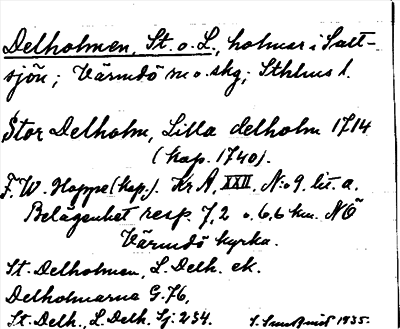 Delholmen, St. o. L., holmar i Salt-
sjön; Värmdö sn o. skg; Sthlms l.
Stor Delholm, Lilla delholm 1714
(kap. 1740).
F. W. Hoppe (kap.). Kr A, XXII, N:o 9 lit. a.
Belägenhet resp. 7,2 o. 6,6 km. NÖ
Värmdö kyrka.
St. Delholmen, L. Delh. ek.
Delholmarna G. 76,
St. Delh., L. Delh. Sj. 234.
1935.